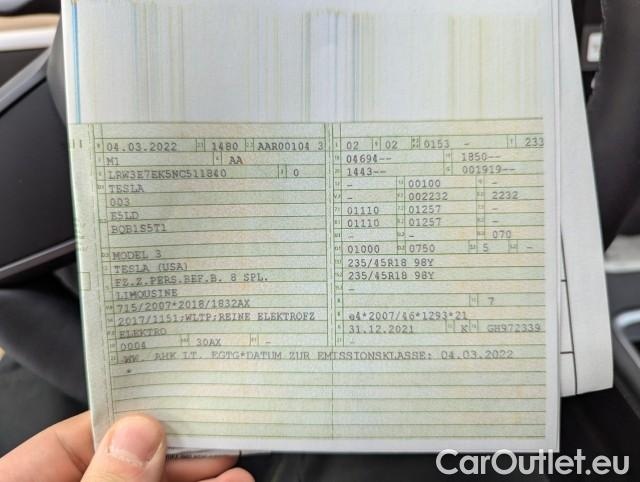 04.03.2022 1480 AAR00104 3
M1 AA
LRW3E7EK5NC511840 0
TESLA
003
E5LD
BQB1S5T1
MODEL 3
TESLA (USA)
FZ.Z.PERS.BEF.B. 8 SPL.
LIMOUSINE
715/2007*2018/1832AX
2017/1151;WLTP;REINE ELEKTROFZ
ELEKTRO
0004 30AX -
02 02 0153 - 233
04694-- 1850--
1443-- 001919--
- 00100 -
- 002232 2232
01110 01257 -
01110 01257 -
- - 070
01000 0750 5 -
235/45R18 98Y
235/45R18 98Y
-
- 7
e4*2007/46*1293*21
31.12.2021 K GH972339
WW. AHK LT. EGTG*DATUM ZUR EMISSIONSKLASSE: 04.03.2022
*
CarOutlet.eu